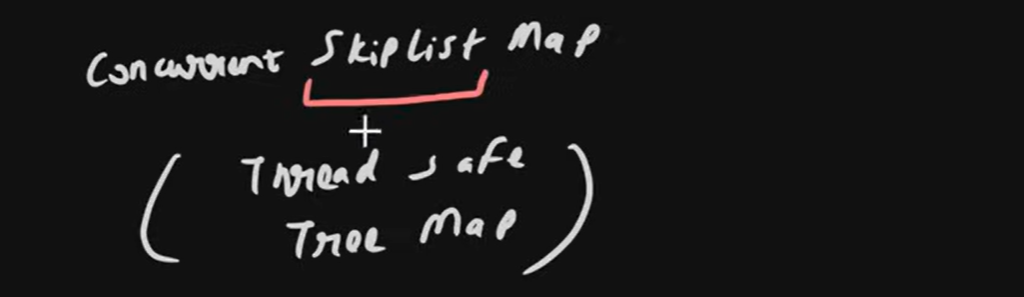 Concurrent SkipList Map
( Thread safe
Tree Map )